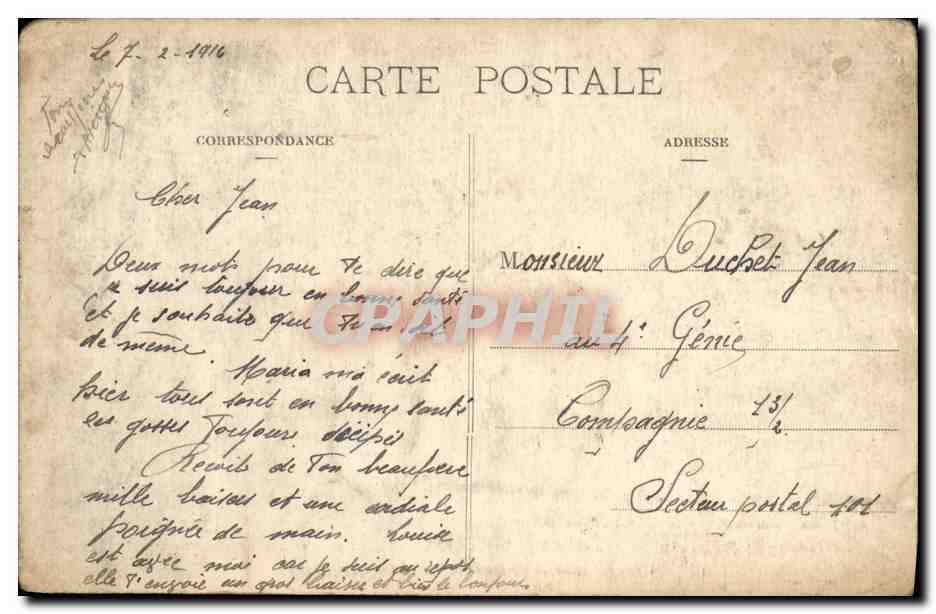 Le 7-2-1916
Ton
CARTE POSTALE
CORRESPONDANCE
ADRESSE
Cher Jean
Deux mots pour te dire que
je suis toujour en bonne santé
et je souhaite que tu en
de même. Maria m'a écrit
hier tous sont en bonne santé
les gosses toujours
Recoit de ton beaufrere
mille baisers et une cordiale
poignée de main. Louise
est avec moi car je suis au repos
elle t'envoie un gros baiser et bien le bonjour
Monsieur Duchet Jean
au 4e Génie
Compagnie 13/2
Secteur postal 101
CPAPHIL